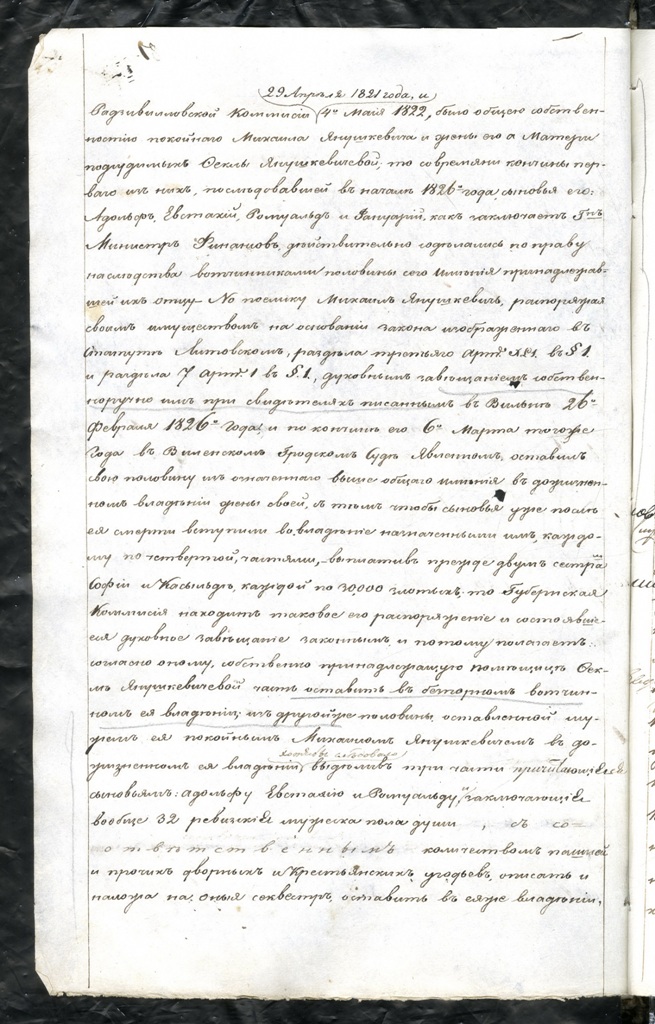 29 Апрѣля 1821 года, и
Радзивилловской Коммисіи 4го Маія 1822, было общею собствен-
ностію покойнаго Михаила Янушкевича и жены его а Матери
подсудимыхъ Ѳеклы Янушкевичевой; то со времяни кончины пер-
ваго изъ нихъ, послѣдовавшей въ началѣ 1826го года, сыновья его:
Адольфъ, Евстахій, Ромуальдъ и Януарій, какъ заключаетъ Гнъ
Министръ Финансовъ, дѣйствительно содѣлались по праву
наслѣдства вотчинниками половины сего имѣнія принадлежав-
шей ихъ отцу. Но поелику Михаилъ Янушкевичъ, распоряжая
своимъ имуществомъ на основаніи закона изображеннаго въ
Статутѣ Литовскомъ, раздѣла третьяго арт: въ § 1.
и раздѣла 7 арт: 1 въ §. 1., духовнымъ завѣщаніемъ собствен-
норучно имъ при свидѣтеляхъ писаннымъ въ Вильнѣ 26го
Февраля 1826го года, и по кончинѣ его 6го Марта тогоже
года въ Виленскомъ Гродскомъ Судѣ явленномъ, оставилъ
свою половину изъ означеннаго выше общаго имѣнія въ дожизнен-
номъ владѣніи жены своей, съ тѣмъ чтобы сыновья уже послѣ
ея смерти вступили во владѣніе назначенными имъ, каждо-
му по четвертой, частями, выплативъ прежде двумъ сестрамъ
Софіи и Касильдѣ, каждой по 30000 злотыхъ, то Губернская
Коммисія находитъ таковое его распоряженіе и состоявше-
еся духовное завѣщаніе законнымъ и потому полагаетъ:
согласно оному, собственно принадлежащую помѣщицѣ Ѳек-
лѣ Янушкевичевой часть оставить въ безспорномъ вотчин-
номъ ея владѣніи; изъ другой же половины, оставленной му-
жемъ ея покойнымъ Михаиломъ Янушкевичемъ въ до-
жизненномъ ея владѣніи, выдѣливъ три части причитающіеся
сыновьямъ: Адольфу Евстахію и Ромуальду, заключающіе
вообще 32 ревизскіе мужеска пола души , съ со-
отвѣтственнымъ количествомъ пашней
и прочихъ дворныхъ и крестьянскихъ угодьевъ, описать и
наложа на оныя секвестръ, оставить въ ея же владѣніи,